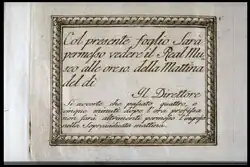 Col presente foglio Sarà
permesso vedere il Real Mu,
seo alle ore 10. della Mattina
del dì
Il Direttore
Si avverte, che passato quattro, o
cinque minuti dopo l'ora prefissa
non sarà altrimenti permesso l'ingresso
nella Sopraindicata mattina.